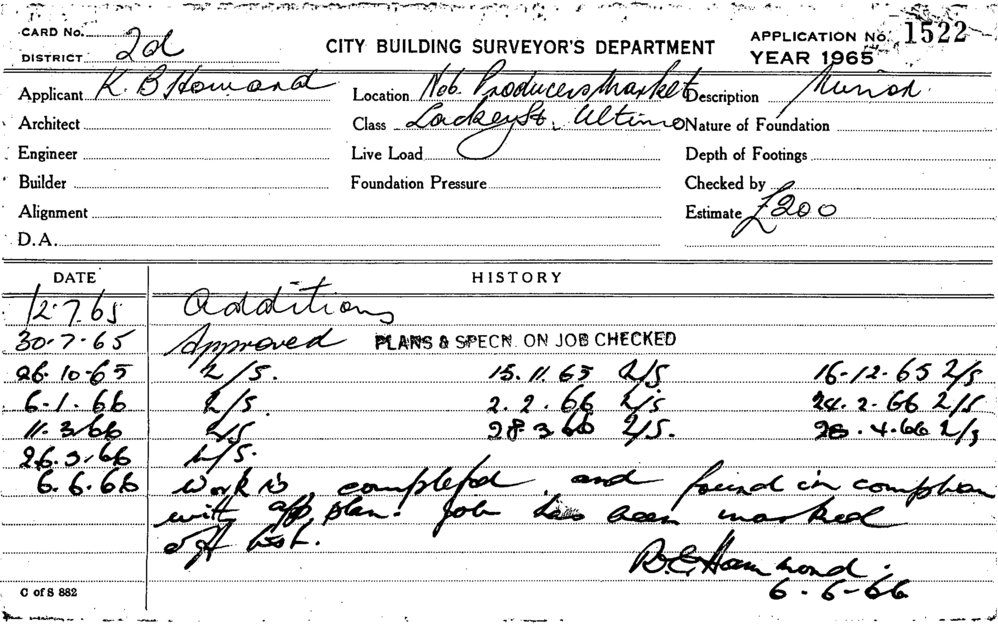 CARD No.
DISTRICT 2d
CITY BUILDING SURVEYOR'S DEPARTMENT
APPLICATION No. 1522
YEAR 1965
Applicant K. B Howard Location Producers Market Description Minor.
Architect Class Lackey St. Ultimo Nature of Foundation
Engineer Live Load Depth of Footings
Builder Foundation Pressure Checked by
Alignment Estimate £200
D.A.
DATE HISTORY
12.7.65 Additions
30-7-65 Approved PLANS & SPECN. ON JOB CHECKED
26.10-65 2/S. 15.11.65 2/S 16-12-65 2/S
6-1.66 2/S. 2.2.66 2/S 24.2.66 2/S
11.3.66 2/S 28.3.66 2/S. 28.4.66 2/S
26.5.66 2/S.
6.6.66 work is completed and found in complian
with app plan. Job has been marked
off list.
Hammond.
6-6-66
C of S 882